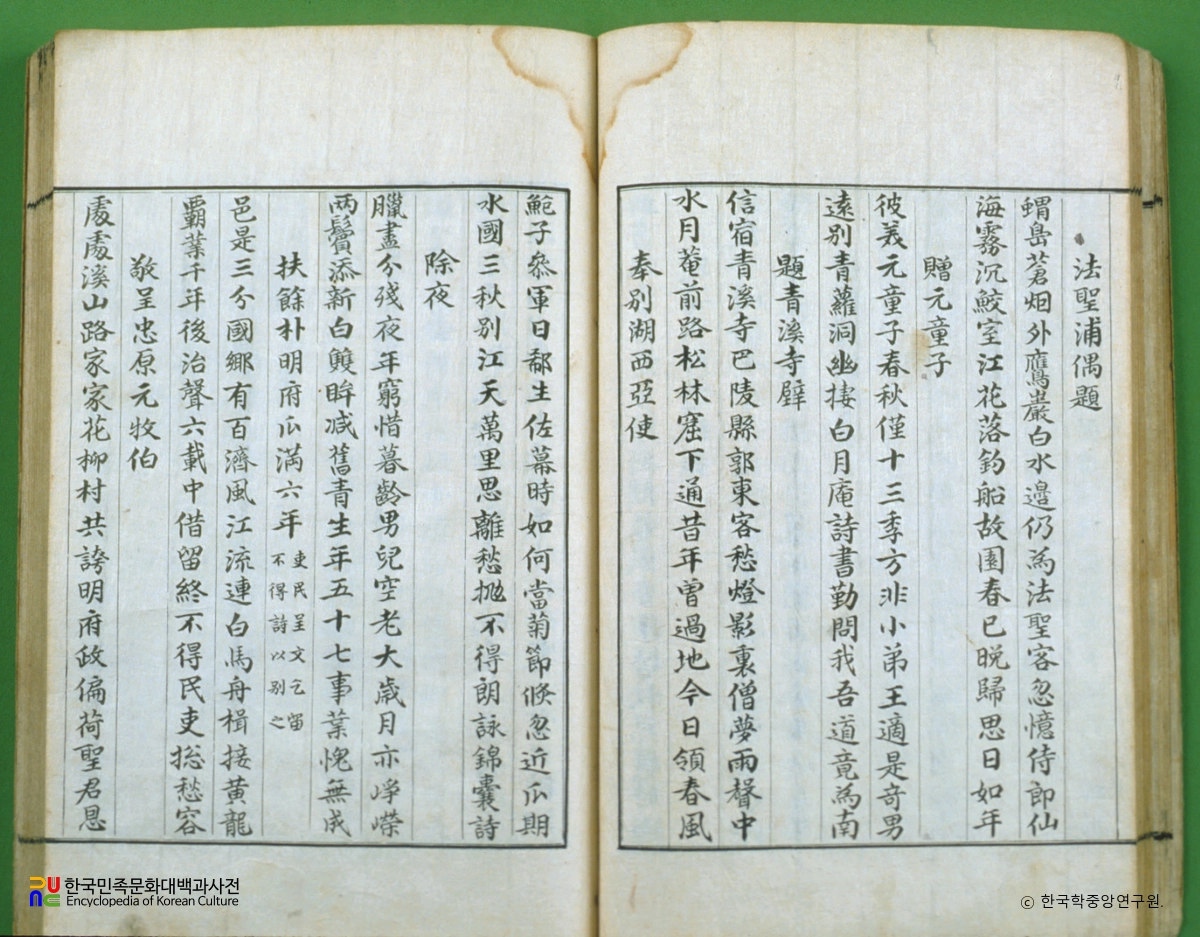 法聖浦偶題
蝟島蒼烟外鷹巖白水邊仍為法聖客忽憶侍郎仙
海霧沉鮫室江花落釣船故園春已晩歸思日如年
贈元童子
彼美元童子春秋僅十三季方非小弟王適是奇男
遠別青蘿洞幽捿白月庵詩書勤問我吾道竟為南
題青溪寺壁
信宿青溪寺巴陵縣郭東客愁燈影裏僧夢雨聲中
水月菴前路松林窟下通昔年曽過地今日領春風
奉別湖西亞使
鮑子叅軍日郗生佐幕時如何當菊節倐忽近瓜期
水國三秋別江天萬里思離愁抛不得朗詠錦囊詩
除夜
臘盡分殘夜年窮惜暮齡男兒空老大歲月亦崢嶸
兩鬢添新白雙眸减舊青生年五十七事業愧無成
扶餘朴明府瓜滿六年吏民呈文乞留
不得詩以别之
邑是三分國鄉有百濟風江流連白馬舟楫接黄龍
覇業千年後治聲六載中借留終不得民吏揔愁容
敬呈忠原元牧伯
處處溪山路家家花柳村共誇明府政偏荷聖君恩
한국민족문화대백과사전
Encyclopedia of Korean Culture
ⓒ 한국학중앙연구원.